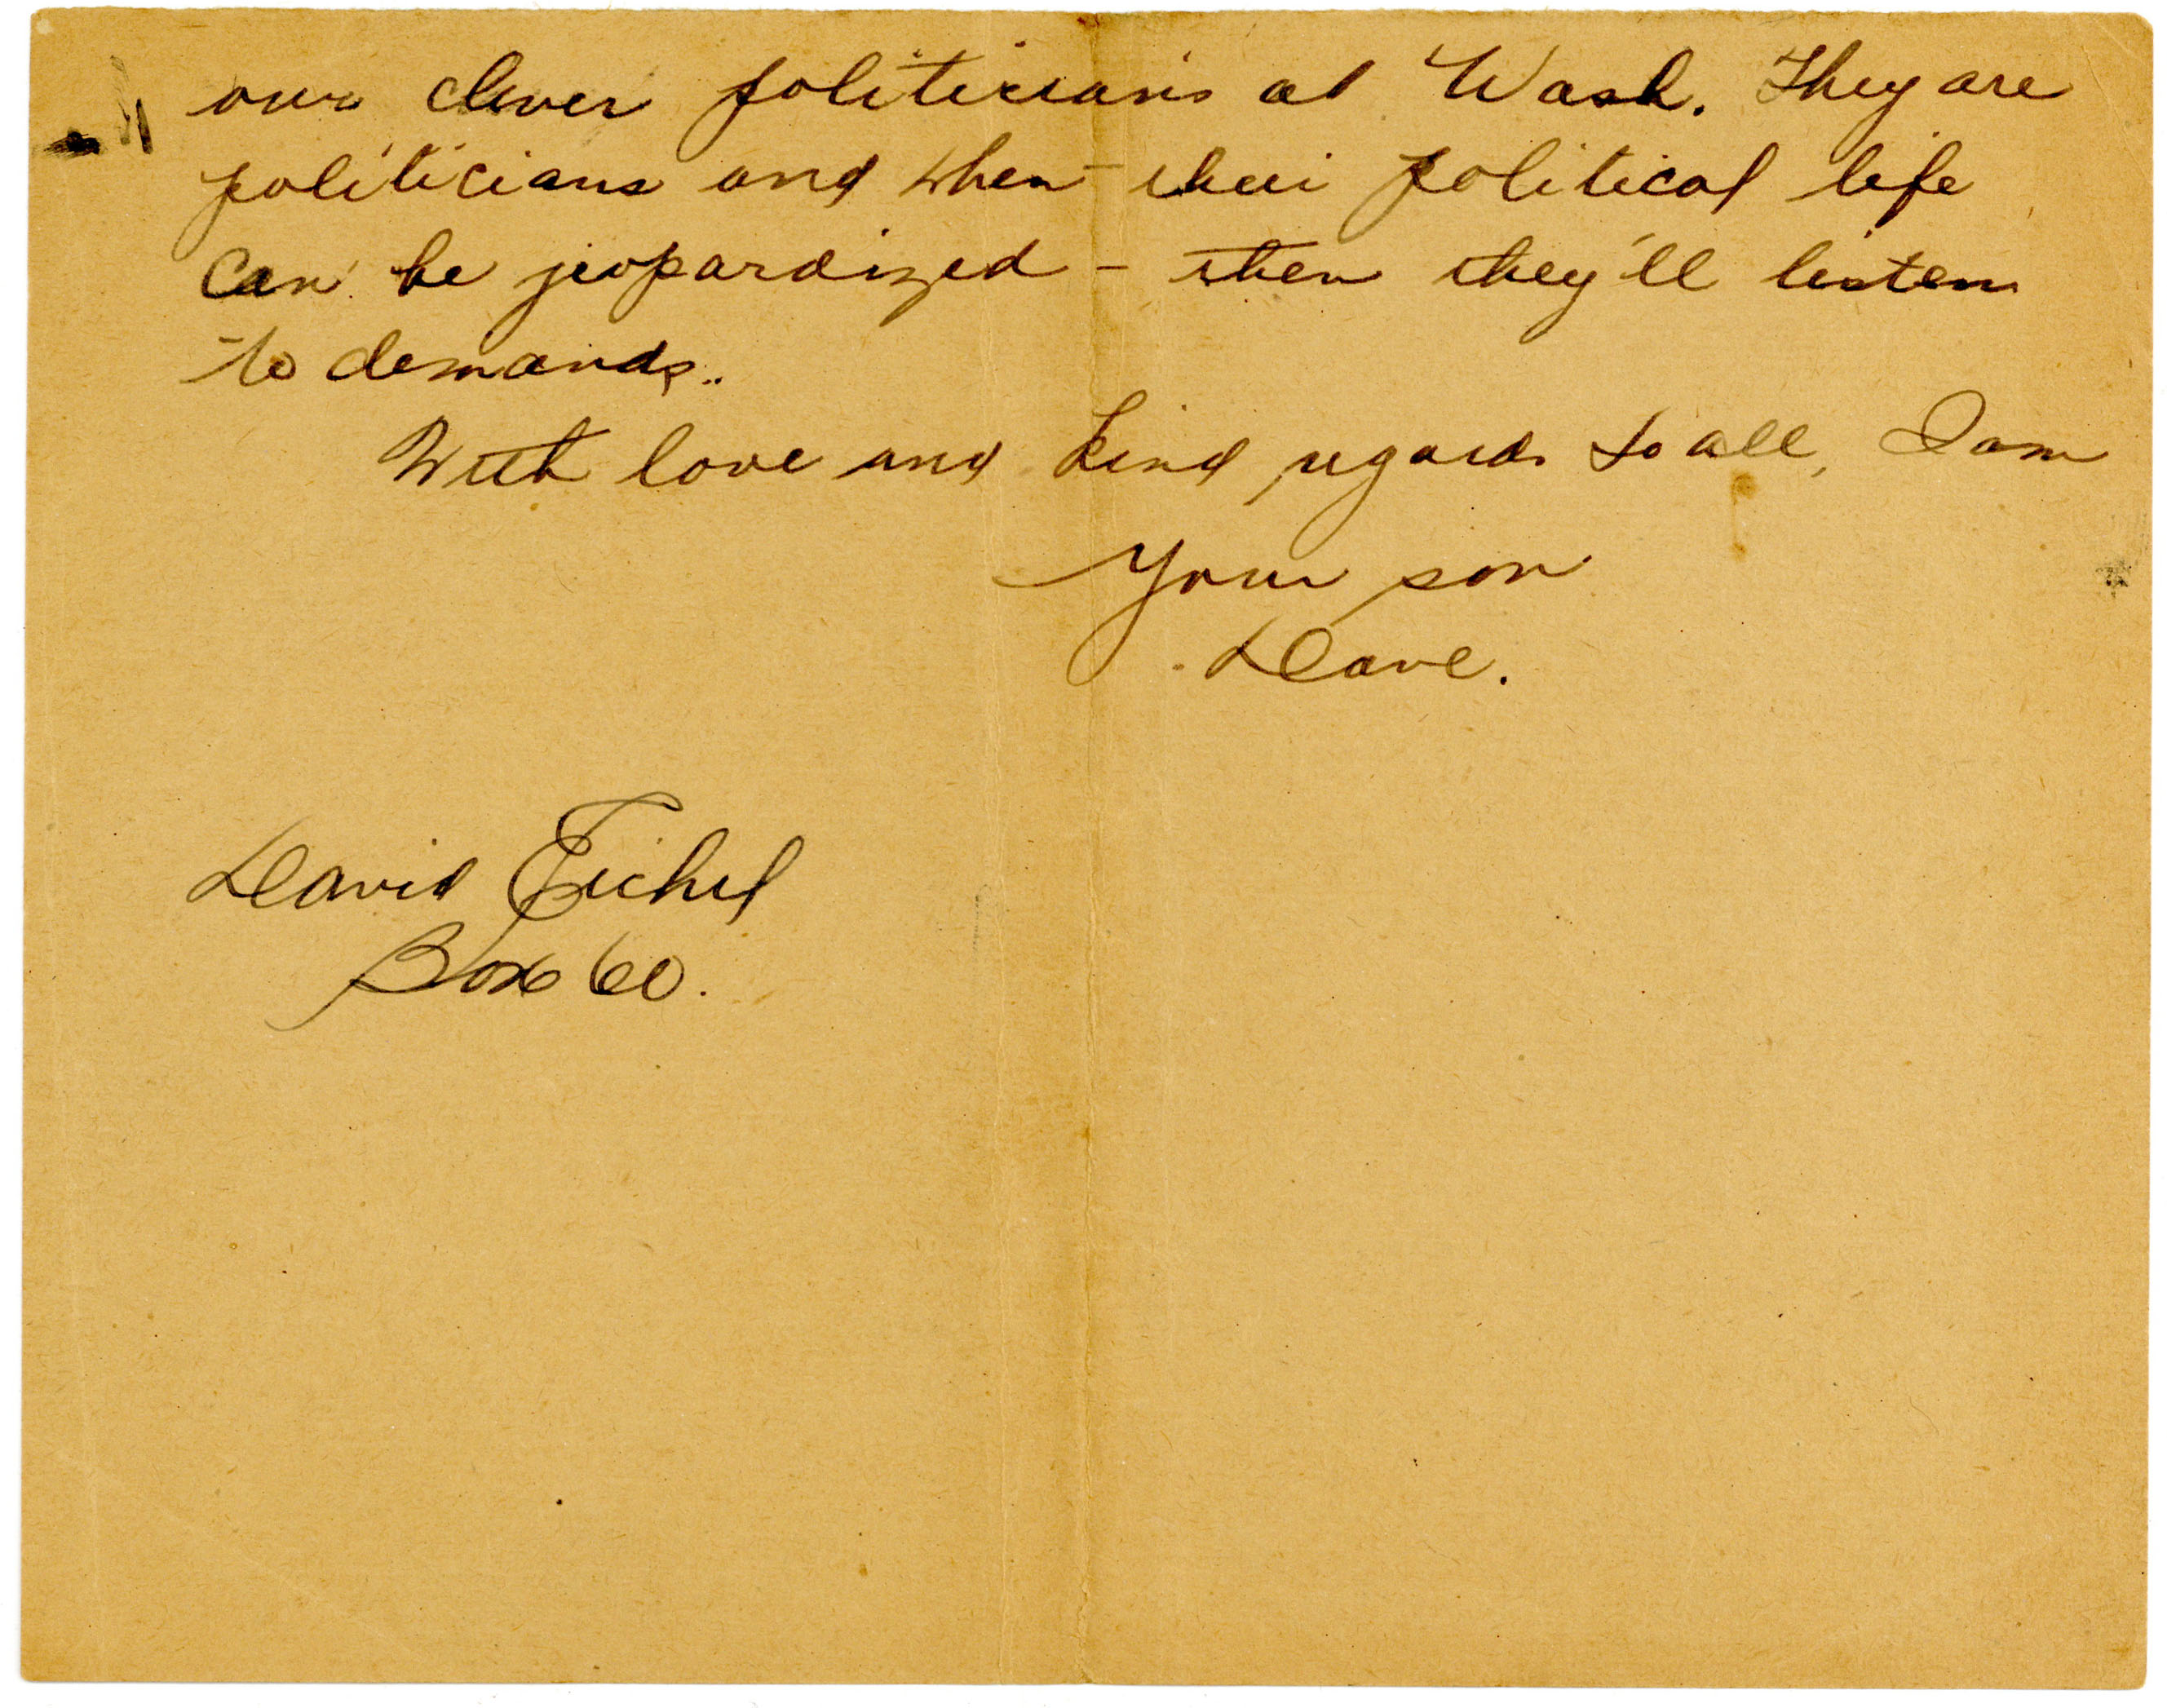 our clever politicians at Wash. They are
politicians and when their political life
can be jeopardized – then they'll listen
to demands.
With love and kind regards to all, I am
Your son
Dave.
David Eichel
Box 60.